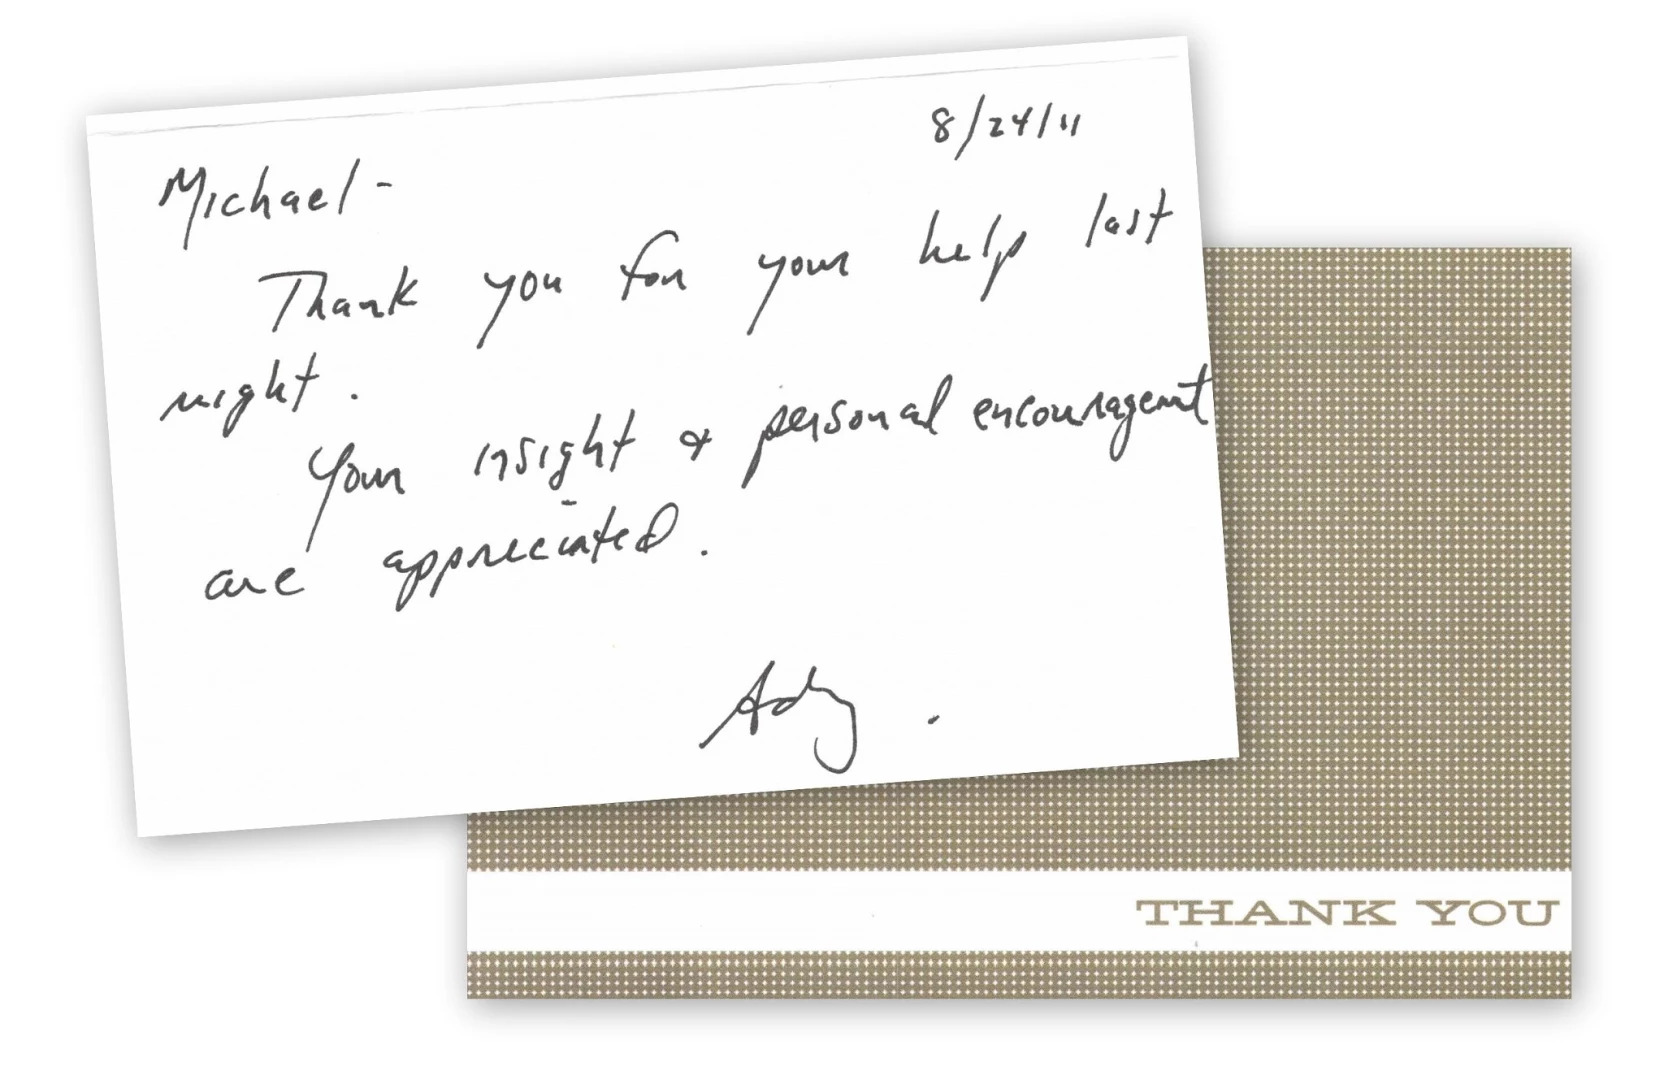 8/24/11
Michael-
Thank you for your help last
night.
Your insight & personal encouragement
are appreciated.
THANK YOU